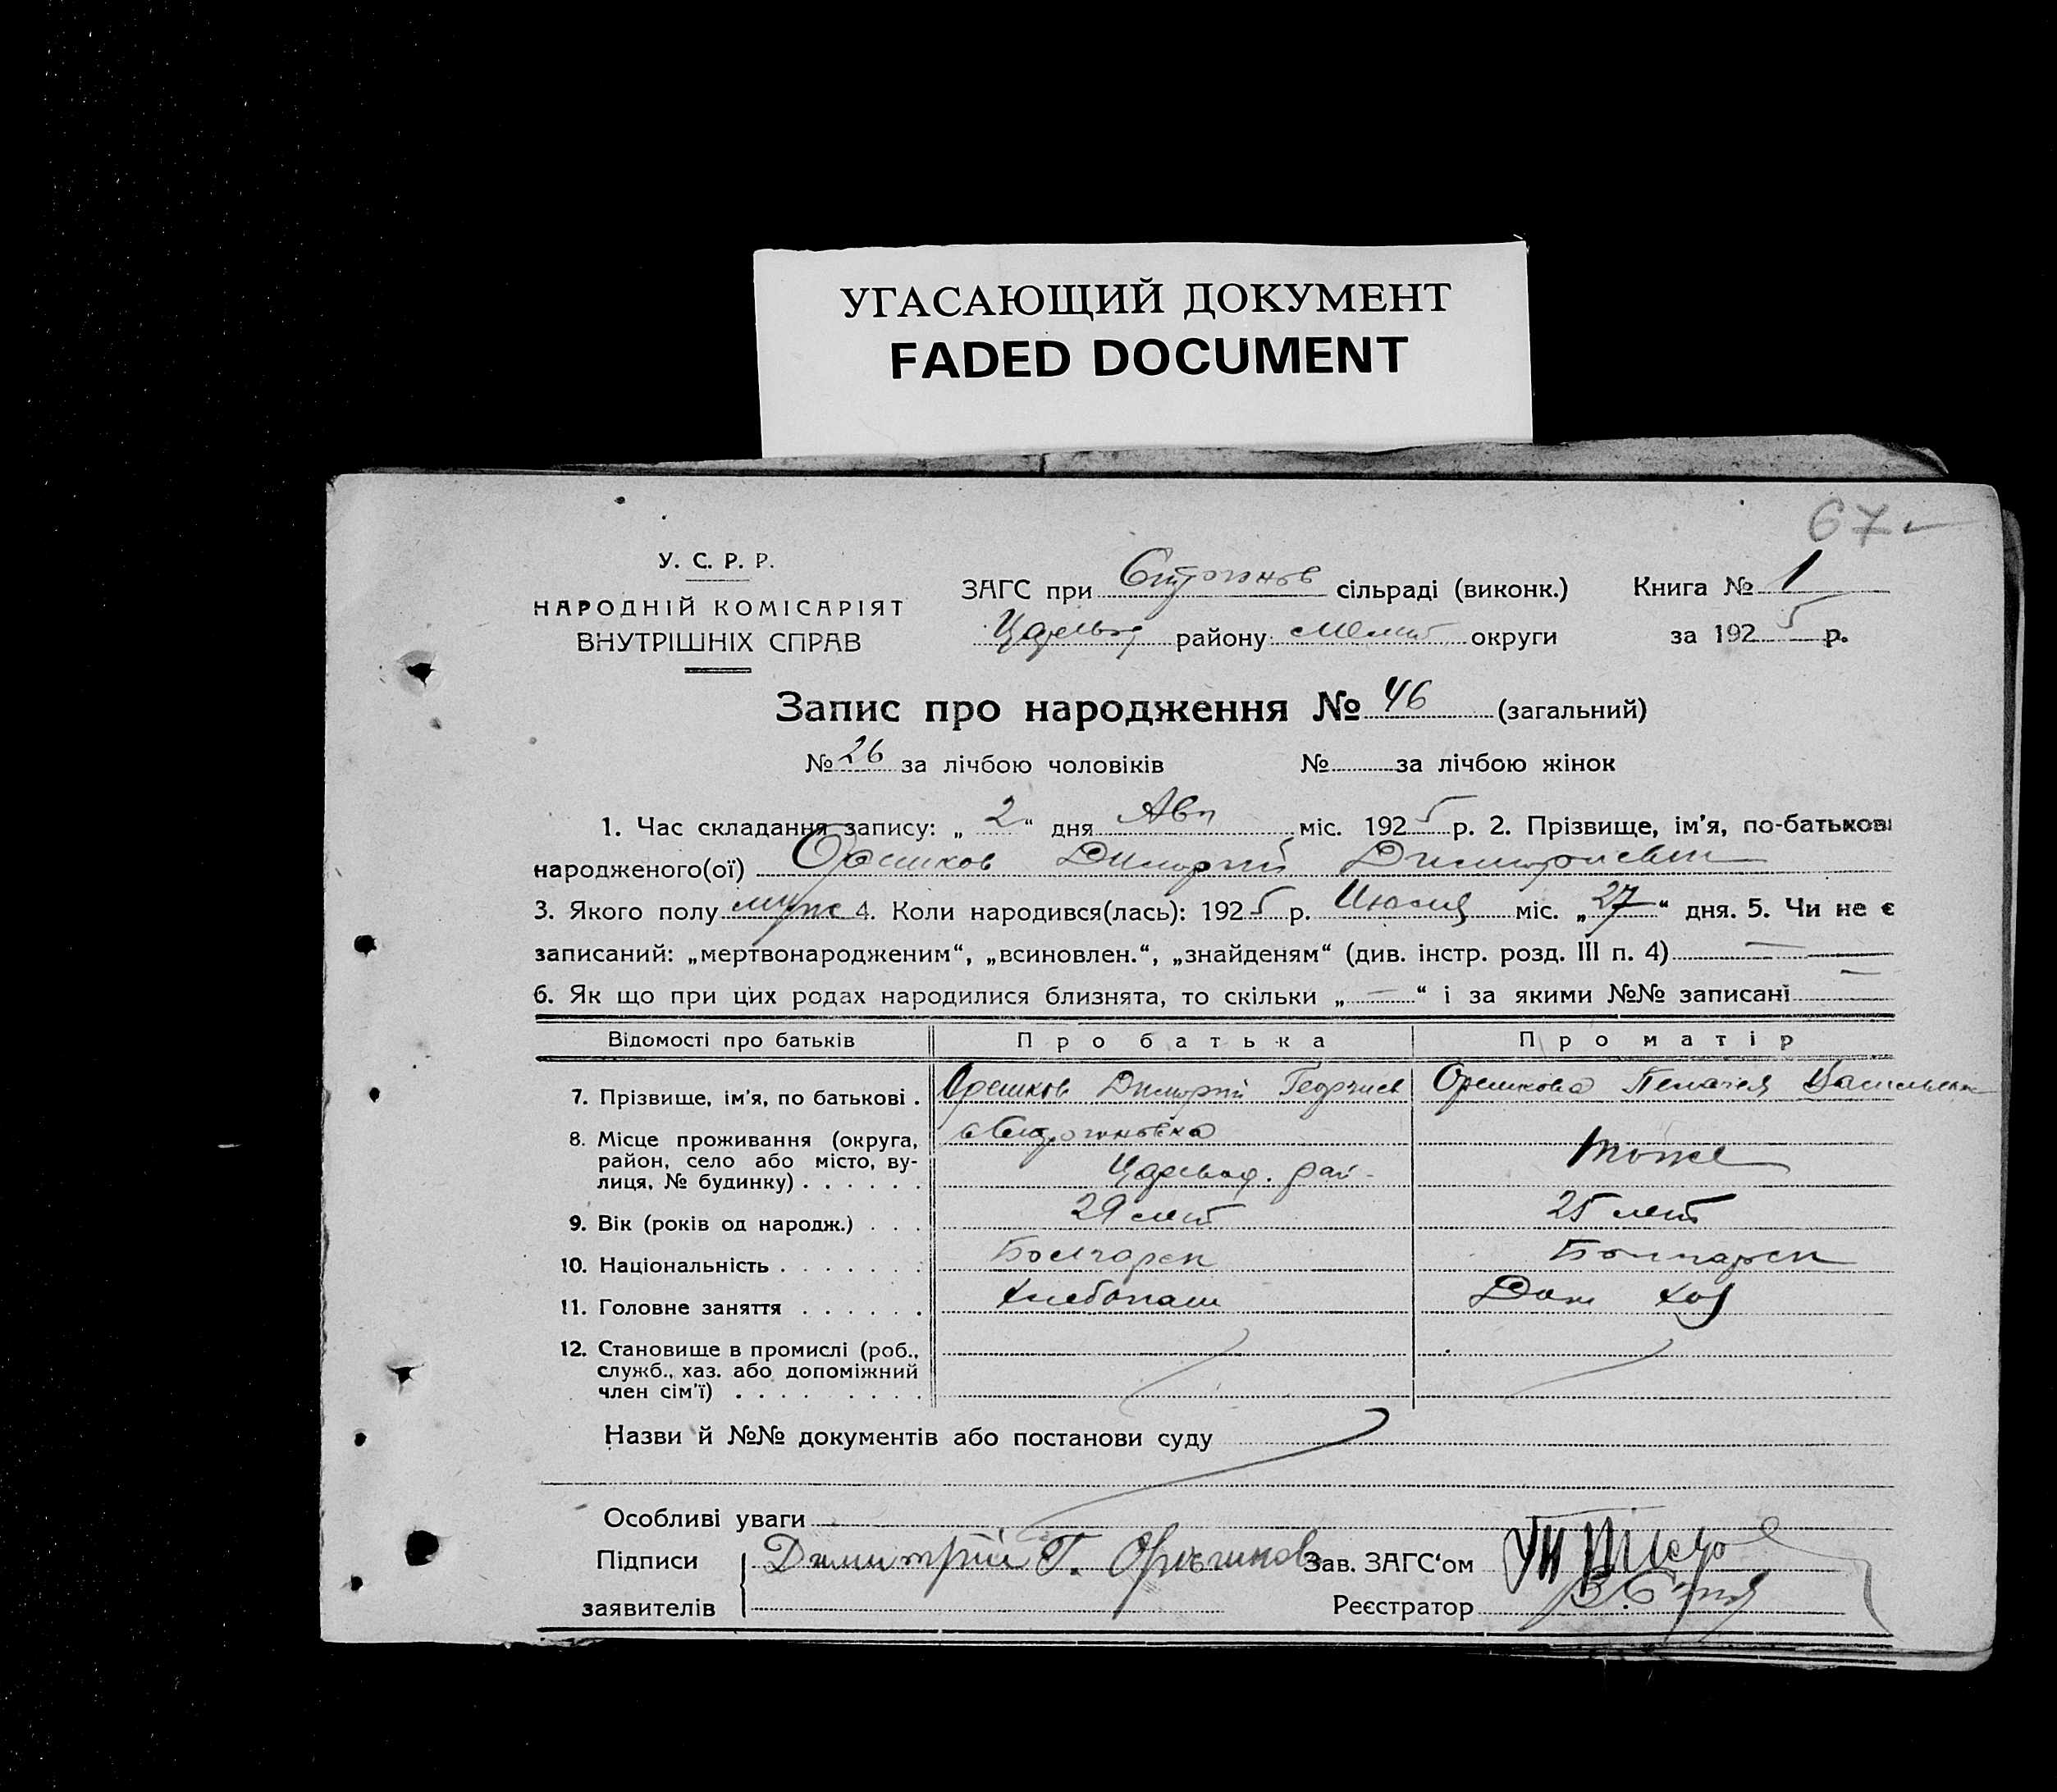 УГАСАЮЩИЙ ДОКУМЕНТ
FADED DOCUMENT
67
У. С. Р. Р.
НАРОДНІЙ КОМІСАРІЯТ
ВНУТРІШНІХ СПРАВ
ЗАГС при сільраді (виконк.) Книга № 1
району Мелит округи за 1925 р.
Запис про народження № 46 (загальний)
№ 26 за лічбою чоловіків № за лічбою жінок
1. Час складання запису: „ 2 “ дня Авг міс. 1925 р. 2. Прізвище, ім’я, по-батькові
народженого(ої) Орешков Димитрий Димитриевич
3. Якого полу муж 4. Коли народився(лась): 1925 р. Июля міс. „27“ дня. 5. Чи не є
записаний: „мертвонародженим“, „всиновлен.“, „знайденям“ (див. інстр. розд. III п. 4) —
6. Як що при цих родах народилися близнята, то скільки „ — “ і за якими №№ записані —
Відомості про батьків Про батька Про матір
7. Прізвище, ім’я, по батькові . Орешков Димитрий Георгиев Орешкова Пелагея
8. Місце проживання (округа,
район, село або місто, ву-
лиця, № будинку) . . . . . . Царевод. рай- тоже
9. Вік (років од народж.) . . . 29 лет 25 лет
10. Національність . . . . . . . Болгарск Болгарск
11. Головне заняття . . . . . . Хлебопаш Дом хоз
12. Становище в промислі (роб.,
служб., хаз. або допоміжний
член сім’ї) . . . . . . . . .
Назви й №№ документів або постанови суду
Особливі уваги
Підписи Димитрий Г. Орешков Зав. ЗАГС‘ом
заявителів Реєстратор